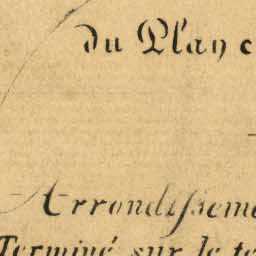 du Plan c
Arrondisseme
Terminé sur le te